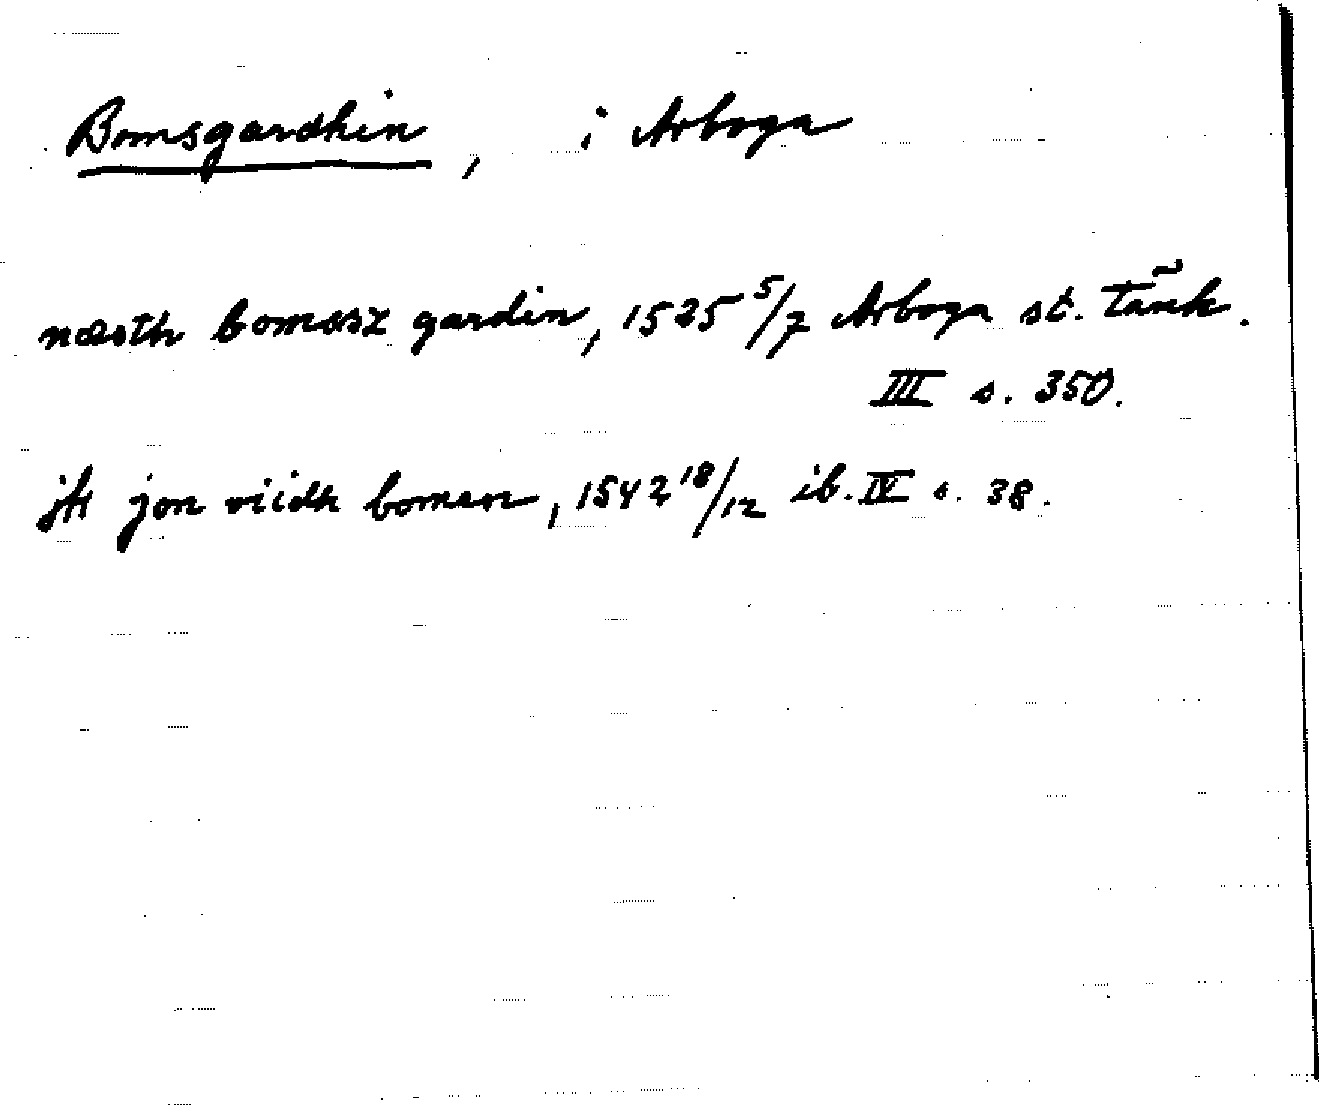 Bomsgardhin, i Arboga
næsth bomæsz gardin, 1525 5/7 Arboga st. tänk.
III s. 350.
jtt jon viidh bomen, 1542 18/12 ib. IV s. 38.